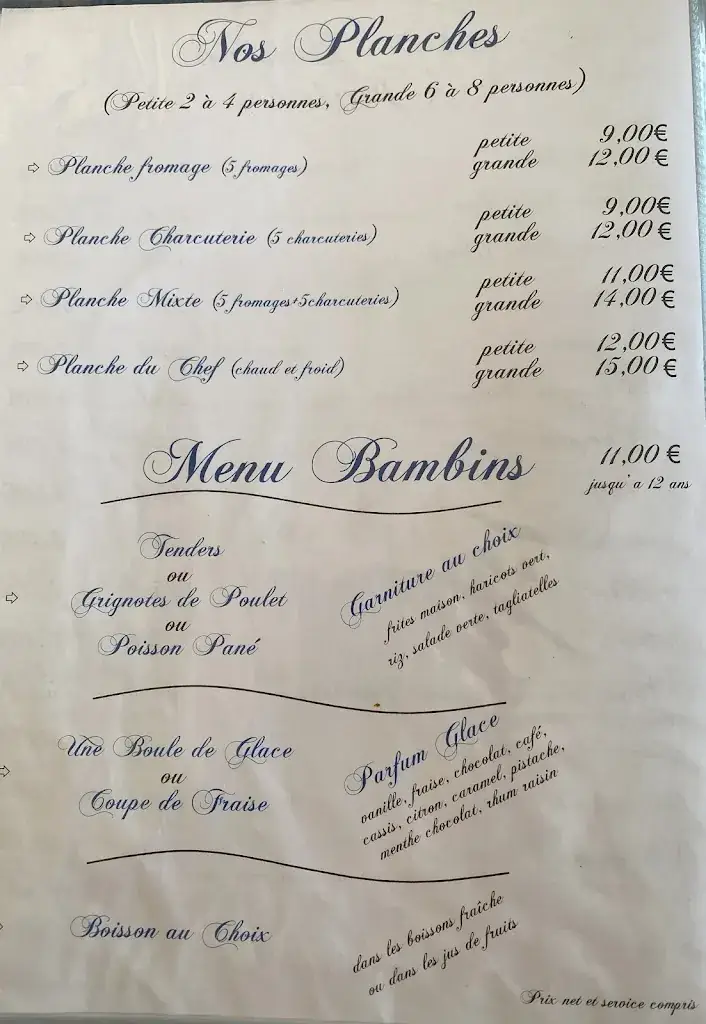 Nos Planches
(Petite 2 à 4 personnes, Grande 6 à 8 personnes)
Planche fromage (5 fromages) petite 9,00€
grande 12,00€
Planche Charcuterie (5 charcuteries) petite 9,00€
grande 12,00€
Planche Mixte (5 fromages+5charcuteries) petite 11,00€
grande 14,00€
Planche du Chef (chaud et froid) petite 12,00€
grande 15,00€
Menu Bambins 11,00 €
jusqu'a 12 ans
Tenders
ou
Grignotes de Poulet
ou
Poisson Pané
Garniture au choix
frites maison, haricots vert,
riz, salade verte, tagliatelles
Une Boule de Glace
ou
Coupe de Fraise
Parfum Glace
vanille, fraise, chocolat, café,
cassis, citron, caramel, pistache,
menthe chocolat, rhum raisin
Boisson au Choix
dans les boissons fraîche
ou dans les jus de fruits
Prix net et service compris